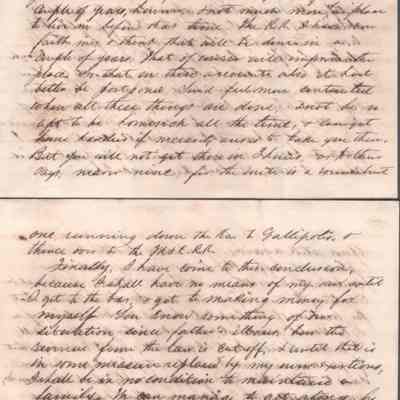 couple of years, however & not much more in place
to live in before that time. The R.R. I have some
faith in, & think that will be done in a
couple of years. That of course will improve the
place. So that on these accounts also it had
better be postponed. I and feel more contented
when all these things are done, & not be so
apt to be homesick all the time, &
have horses if necessary and to take you there.
But you will not get there in as
says, near nine, for the route is a roundabout
one running down the Ra. to Gallipolis, &
thence over to the M & C. R.R.
Finally, I have come to this conclusion,
because I shall have no means of my own until
I get to the bar, & get to making money for
myself. You know something of our
situation since father's illness, how the
revenue from the law is cut off, & until that is
in some measure replaced by my own exertions,
I shall be in no condition to maintain a
family. We can manage to get along by